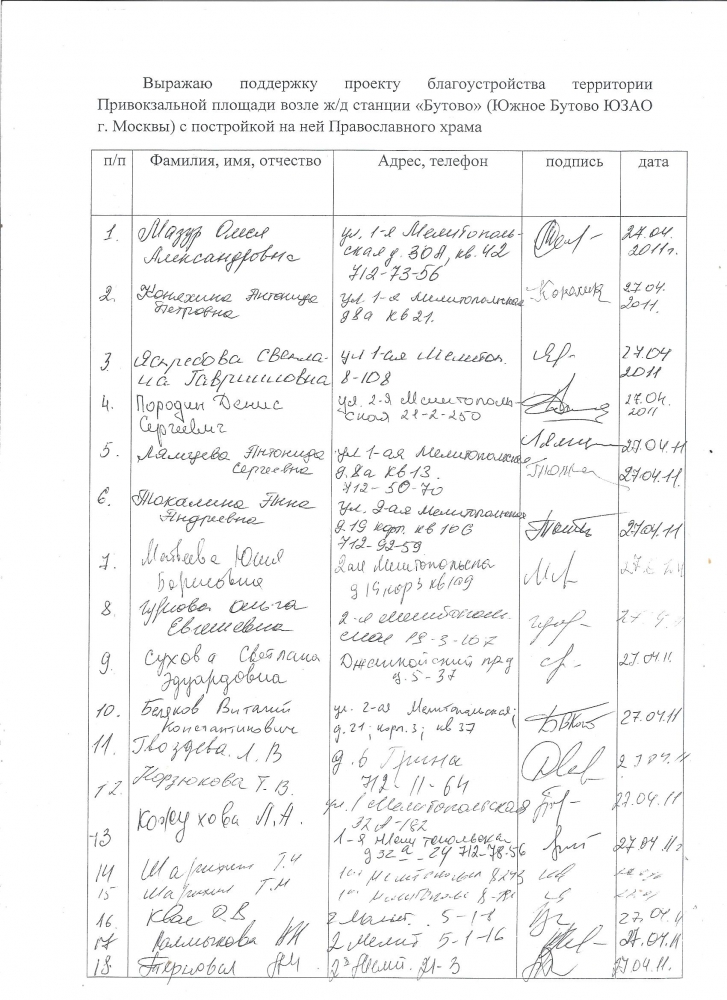 Выражаю поддержку проекту благоустройства территории
Привокзальной площади возле ж/д станции «Бутово» (Южное Бутово ЮЗАО
г. Москвы) с постройкой на ней Православного храма
п/п Фамилия, имя, отчество Адрес, телефон подпись дата
1. Мазур Олеся ул. 1-я Мелитополь- 27.04
Александровна ская д. 30А, кв. 42 2011г.
712-73-56
2. Коняхина Антонида ул. 1-я Мелитопольская 27.04
Петровна д 8а кв 21. 2011.
3. Ястребова Светла- ул 1-ая Мелитоп. 27.04
на Гаврииловна 8-108 2011
4. Породин Денис ул. 2-я Мелитополь- 27.04.
Сергеевич ская 21-2-250 2011
5. Лямцева Антонида ул 1-ая Мелитопольская 27.04.11
Сергеевна д. 8а кв 13. 27.04.11.
712-50-70
6. Токалина Анна ул. 2-ая Мелитопольская
Андреевна д. 19 корп. кв 106 27.04.11
712-92-59
7. Матвеева Юлия 2ая Мелитопольска
Борисовна д 19 кор 3 кв 109
8. Ольга 2-я Мелитополь-
Евгеньевна ская 19-3-107
9. Сухова Светлана Джанкойский прд 27.04.11
Эдуардовна д. 5-37
10. Беляков Виталий ул. 2-ая Мелитопольская; 27.04.11
Константинович д. 21; корп. 3; кв 37
11. Гвоздева Л. В д. 6 Грина 27.04.11
712-11-64
12. Корзюкова Т. В. ул. 1 Мелитопольская 27.04.11
32А-182
13 Кожухова Л.А. 1-я Мелитопольская 27.04.11г
д 32а - 24 712-78-56
14
15
16. О. В 2 Мелит. 5-1-1 27.04.11
17 2 Мелит 5-1-16 27.04.11
18. 21-3 27.04.11.